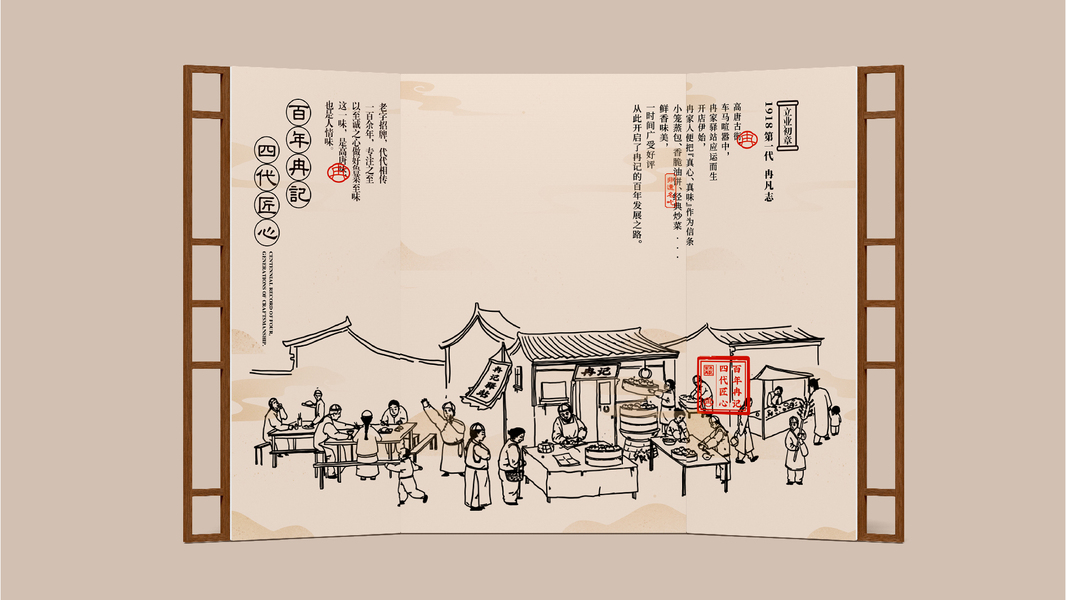 立业初章
1918 第一代 冉凡志
高唐古
车马喧嚣中，
冉家驿站应运而生
开店伊始，
冉家人便把“真心、真味”作为信条
小笼蒸包、香脆油饼、经典炒菜...
鲜香味美，
一时间广受好评
从此开启了冉记的百年发展之路。
老字招牌，代代相传
一百余年，专注之至
以至诚之心做好鱼菜至味
这一味，是高唐味
也是人情味
百年冉記
四代匠心
CENTENNIAL RECORD OF FOUR
GENERATIONS OF CRAFTSMANSHIP.
冉记
冉记驿站
百年冉记
四代匠心